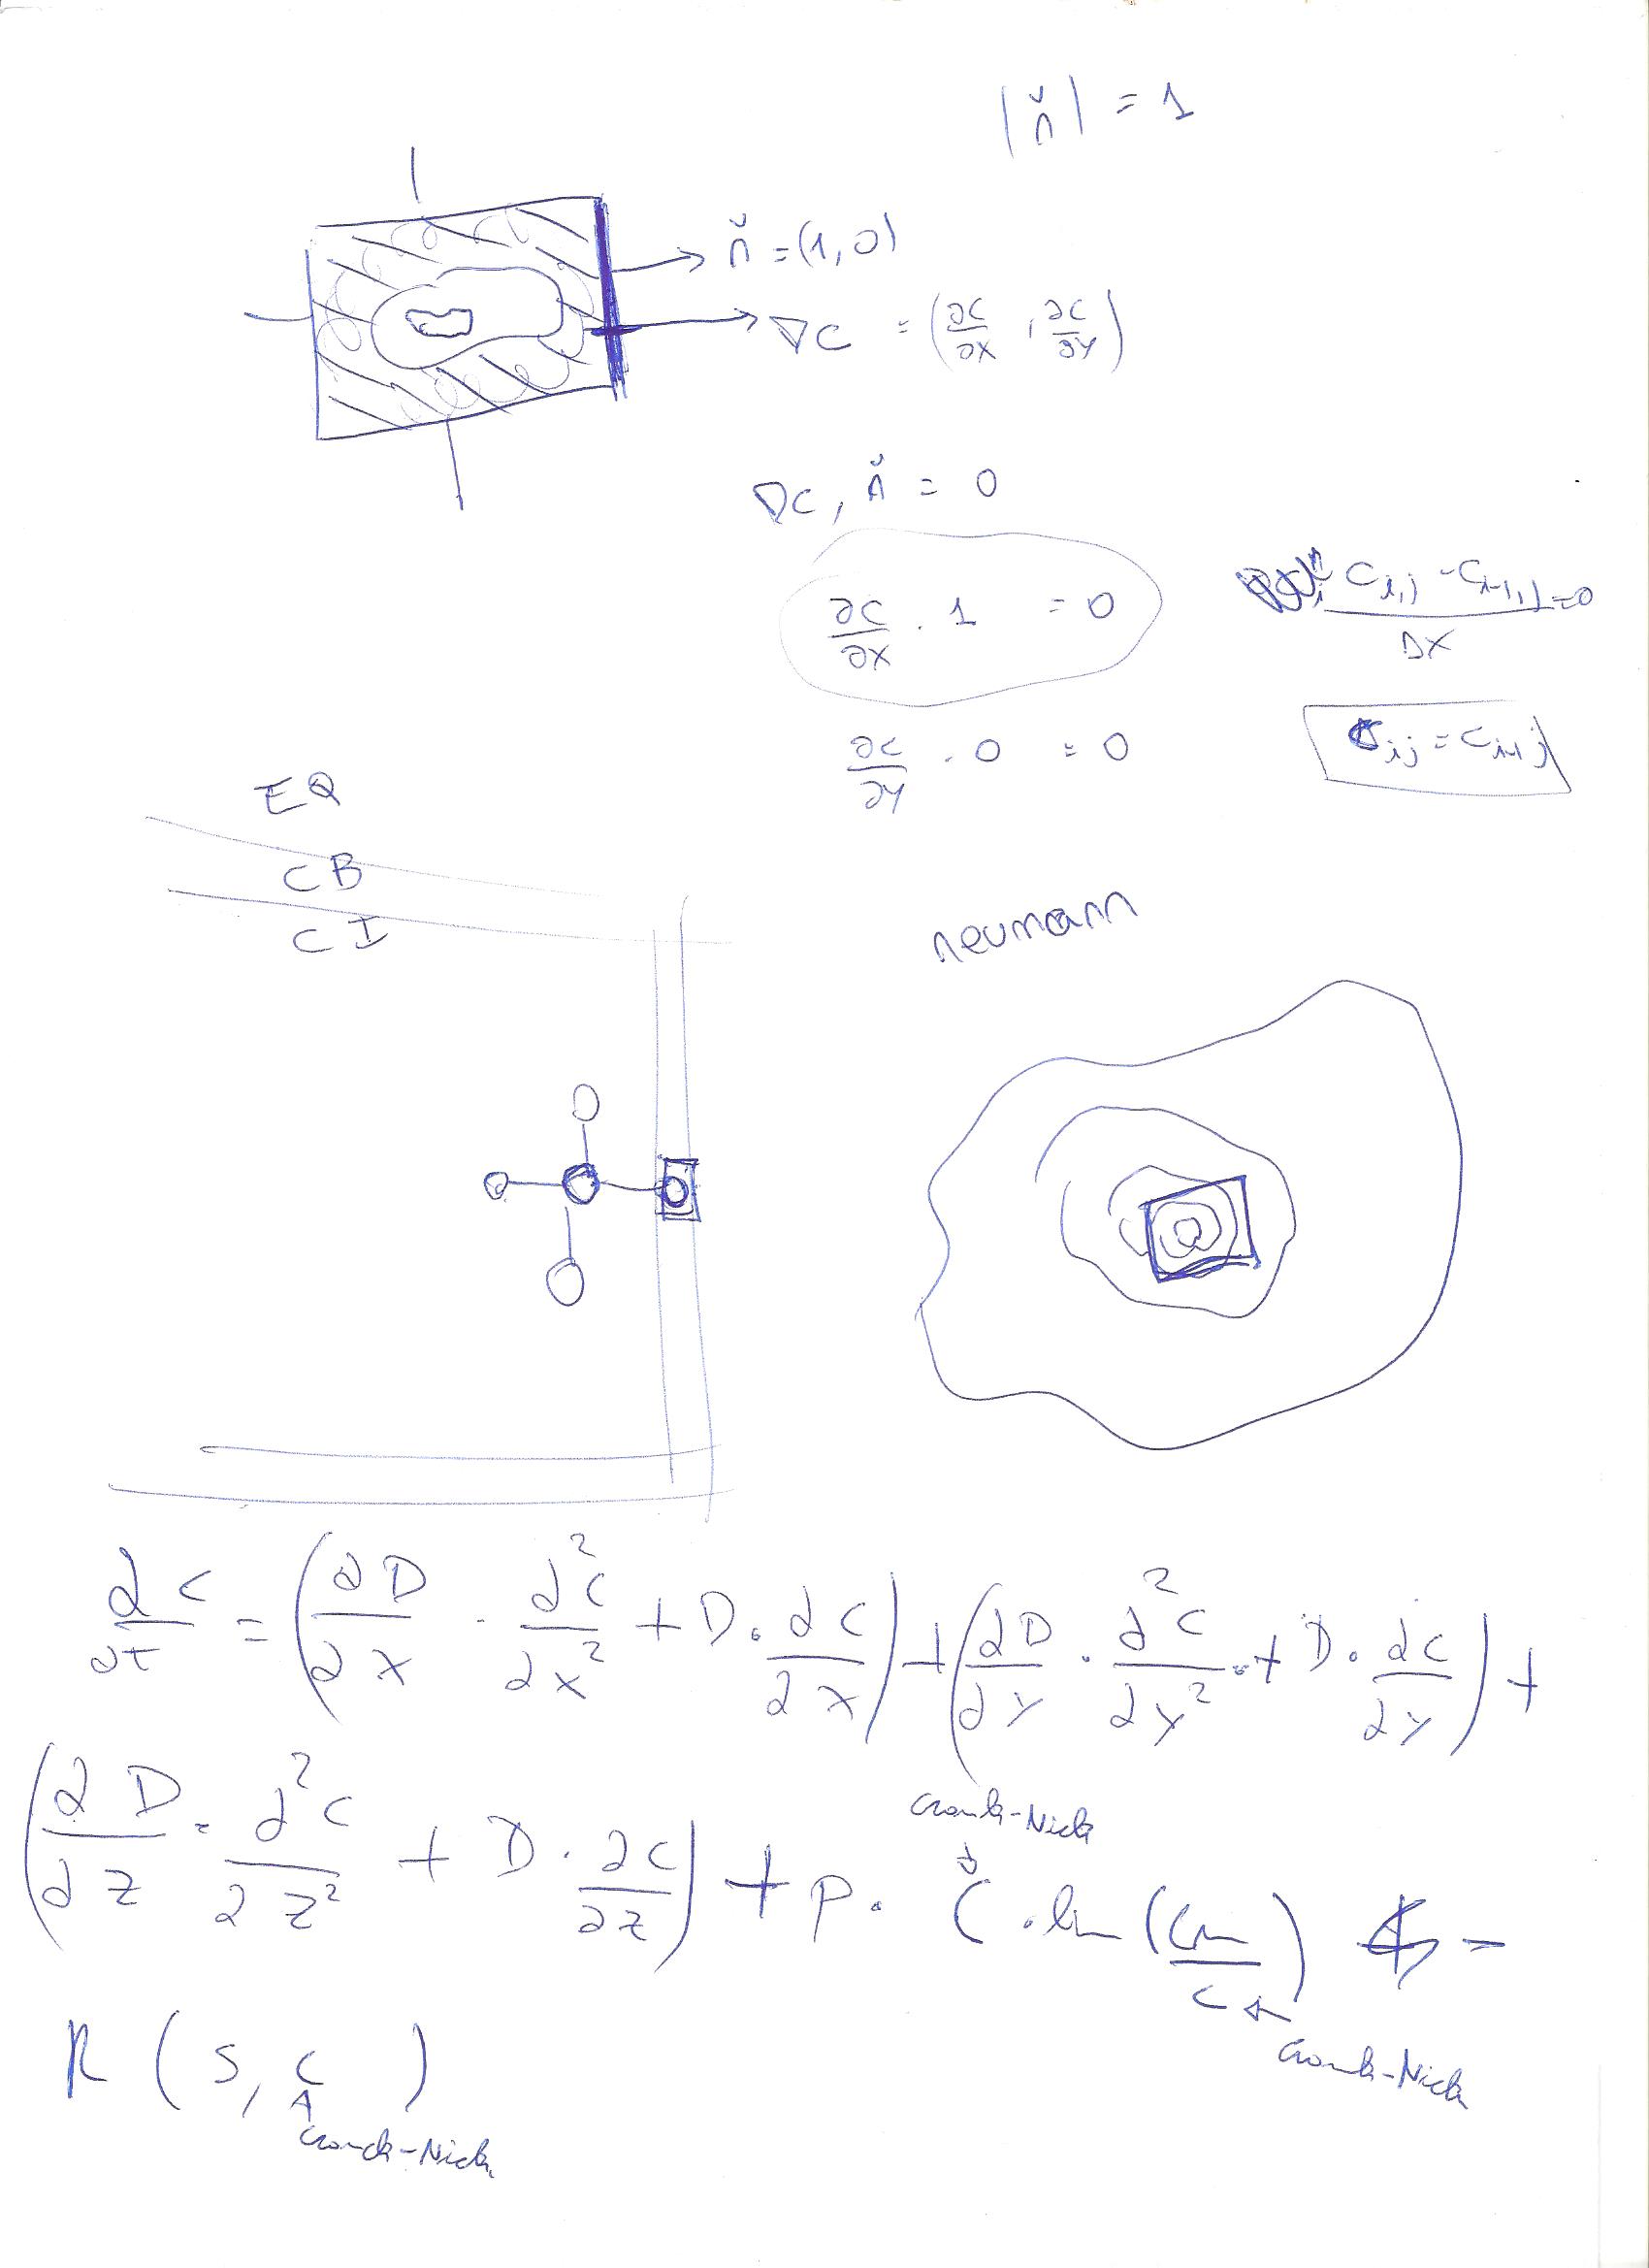 |ň| = 1
ň = (1, 0)
∇C = (∂C/∂X , ∂C/∂Y)
∇C, ň = 0
∂C/∂X . 1 = 0
(C_{i,j} - C_{i-1,j})/ΔX = 0
∂C/∂Y . 0 = 0
C_{ij} = C_{i-1j}
EQ
CB
CI
neumann
∂C/∂t = (∂D/∂x · ∂²C/∂x² + D · ∂C/∂x) + (∂D/∂y · ∂²C/∂y² + D · ∂C/∂y) +
(∂D/∂z · ∂²C/∂z² + D · ∂C/∂z) + p · C · ln(Cm/C) -
Crank-Nick
Crank-Nick
R (S, C)
Crank-Nick